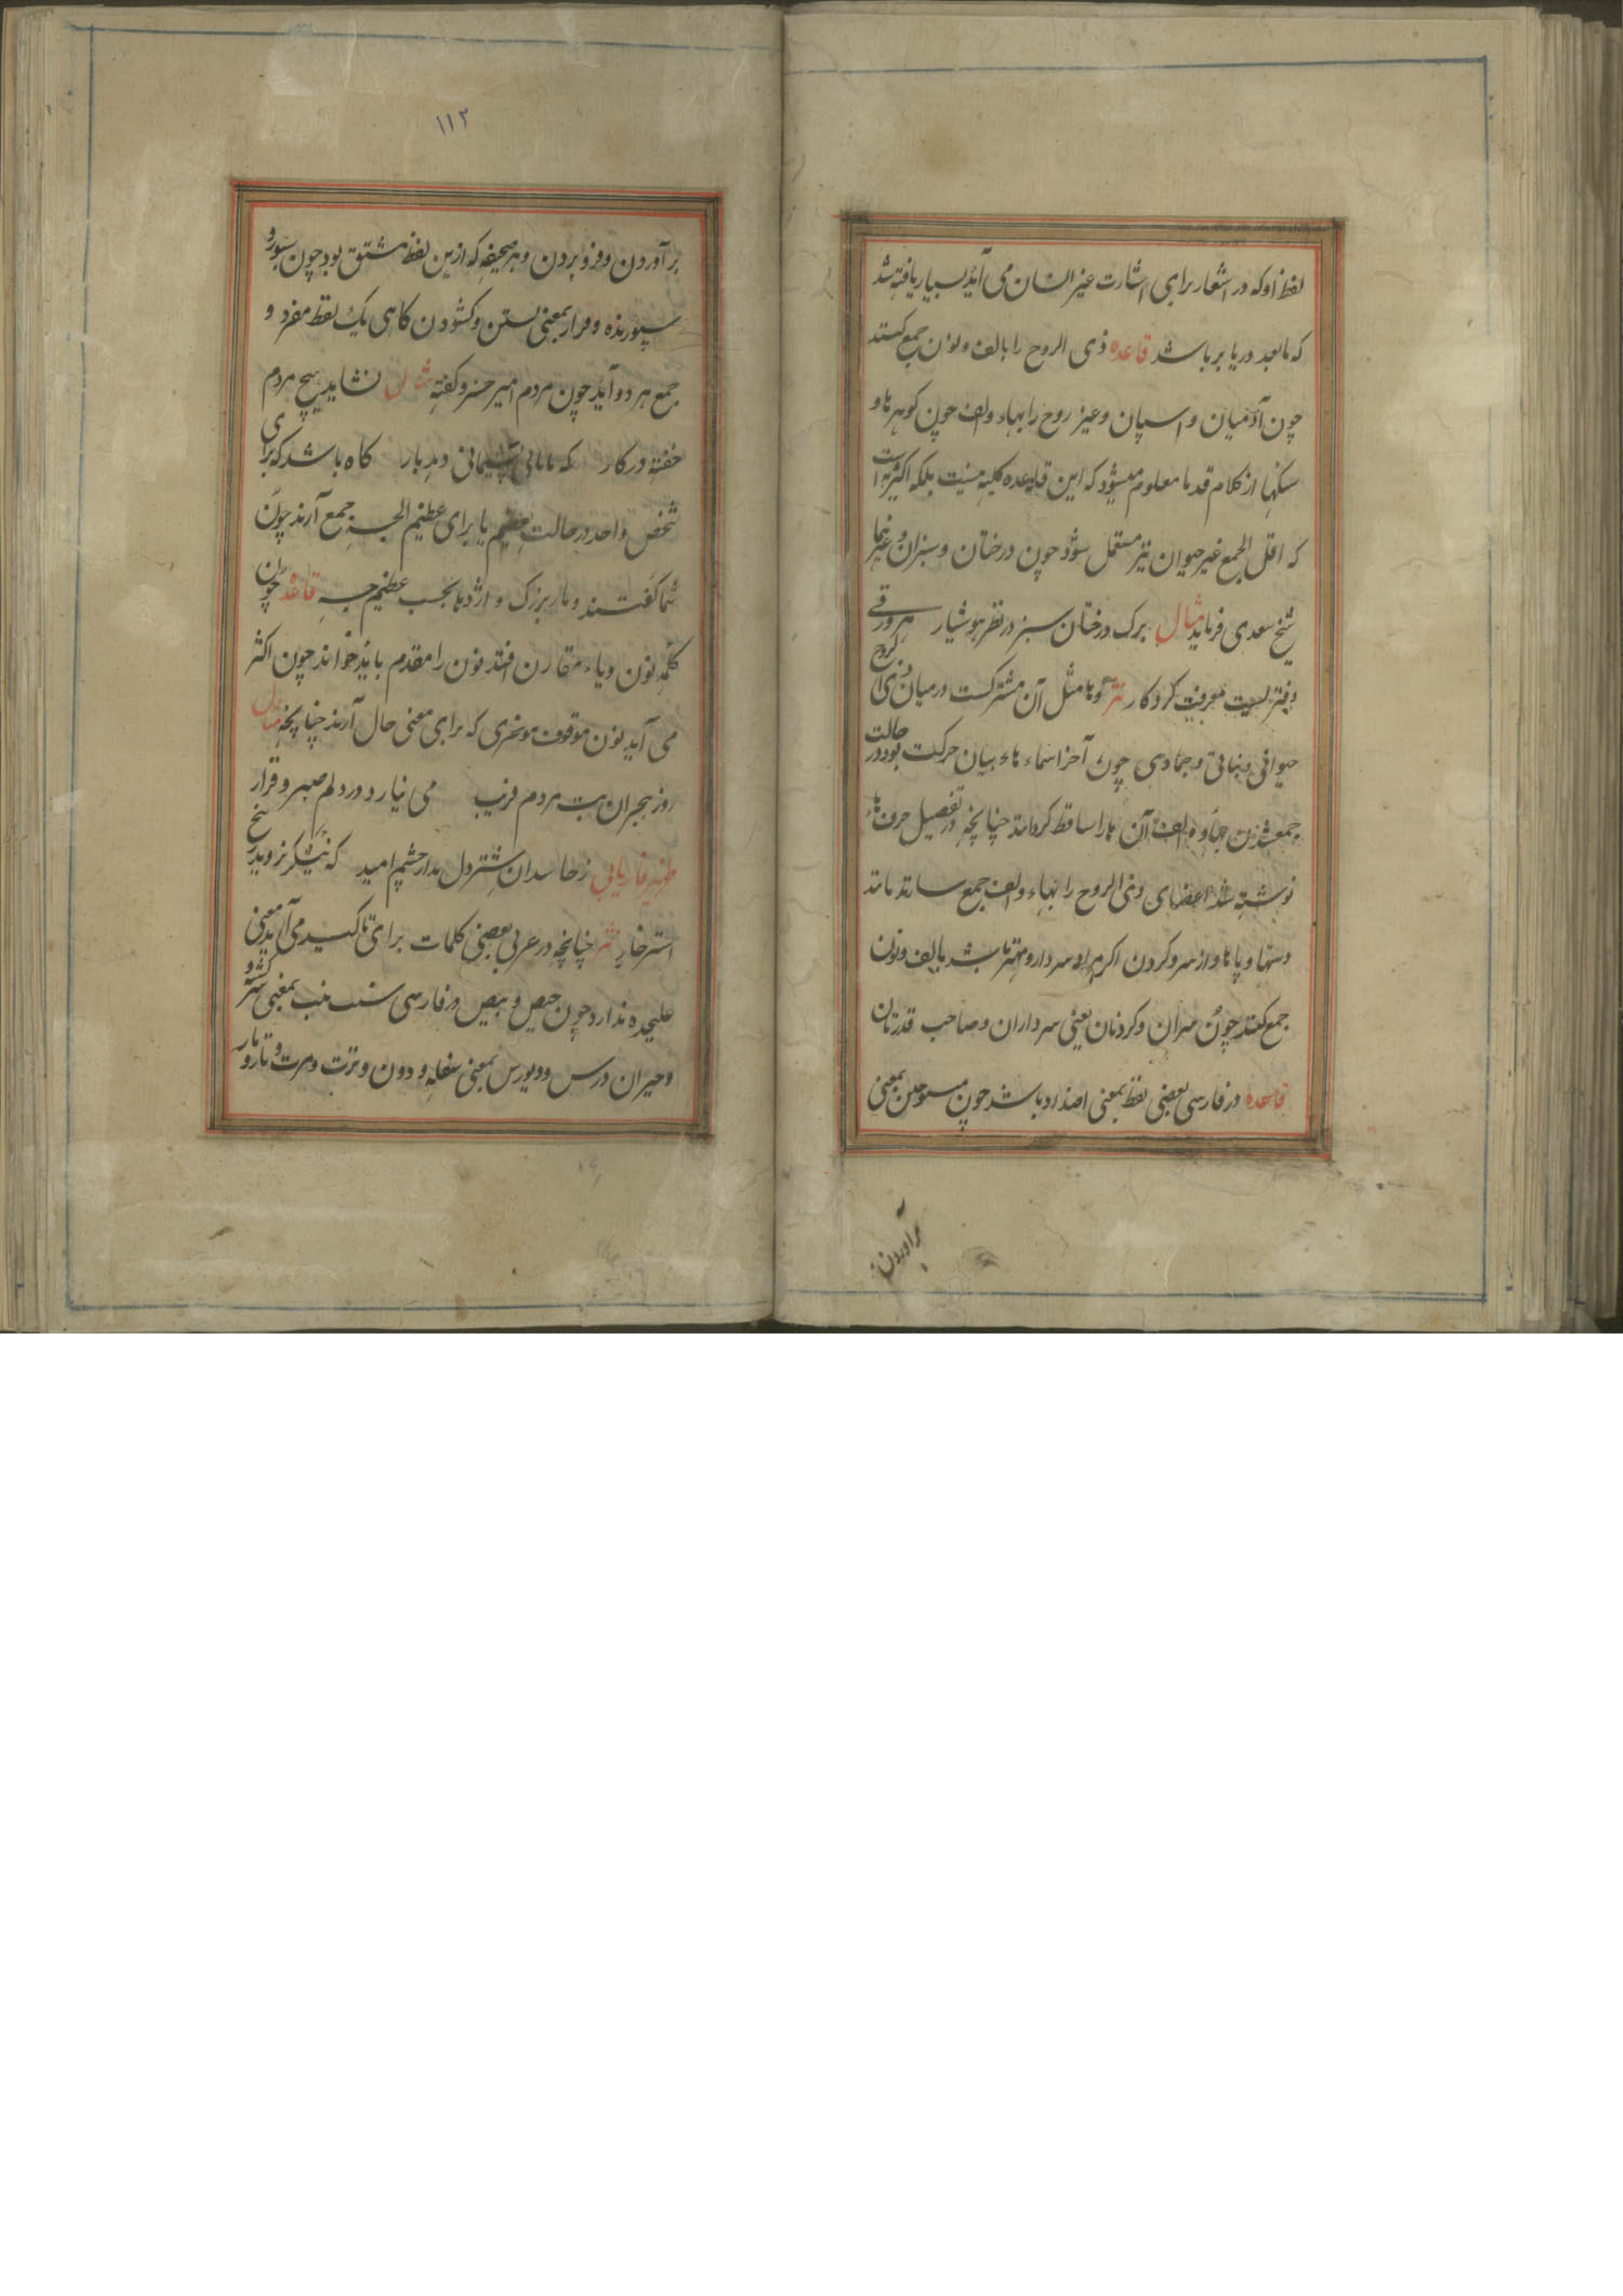 لفظ او که در اشعار برای اشارت غیر انسان می آید بسیار یافته شد
که مابعد دریا بر باشد قاعده ذی الروح را بالف و نون جمع کنند
چون آدمیان و اسپان و غیر روح را بهاء والف چون کوهرها و
سنکها از کلام قدما معلوم میشود که این قاعده کلیه نیست بلکه اکثریه است
که اقل الجمع غیر حیوان نیز مستعمل شود چون درختان و سبزان و غیرهما
شیخ سعدی فرماید مثال برک درختان سبز در نظر هوشیار هر ورقی
دفتریست معرفت کردکار نثر و اما مثل آن مشترکست در میان ذی الروح
حیوانی و نباتی و جمادی چون آخر اسماء هاء بیان حرکت بود در حالت
جمع شدن بهاء و الف آن ها را ساقط کرده‌اند چنانچه در تفصیل حرف هاء
نوشته شد اعضای ذی الروح را بهاء والف جمع سازند مانند
دستها و پاها و از سر و کردن اکر مراد سردار و مهتر باشد بالف و نون
جمع کنند چون سران و کردنان یعنی سرداران و صاحب قدرتان
قاعده در فارسی بعضی لفظ بمعنی اضداد باشد چون بمعنی
برآوردن
۱۱۲
برآوردن و فرو بردن و هر صیغه که ازین لفظ مشتق بود چون
و فراز بمعنی بستن و کشودن کاهی یک لفظ مفرد و
جمع هر دو آید چون مردم امیر خسرو کفته نشاید هیچ مردم
خفته در کار که پشیمانی دهد بار کاه باشد که برای
شخص واحد در حالت تعظیم یا برای عظیم الجثه جمع آرند چون
شما کفتند و مار بزرک و اژدها بحسب عظیم جثه قاعده چون
کلمه نون و یاء مقارن افتد نون را مقدم باید خواند چون اکثر
می آید نون موقوف که برای معنی حال آرند چنانچه مثال
روز هجران بت مردم فریب می نیارد در دلم صبر و قرار
ظهیر فاریابی ز حاسدان دل مدار چشم امید که نیشکر نروید ز بیخ
اشتر خار نثر چنانچه در عربی بعضی کلمات برای تاکید می آید معنی
علیحده ندارد چون حیص و بیص در فارسی بمعنی سرکشته و
و حیران بمعنی سفله و دون و ترت و مرت و تار و مار